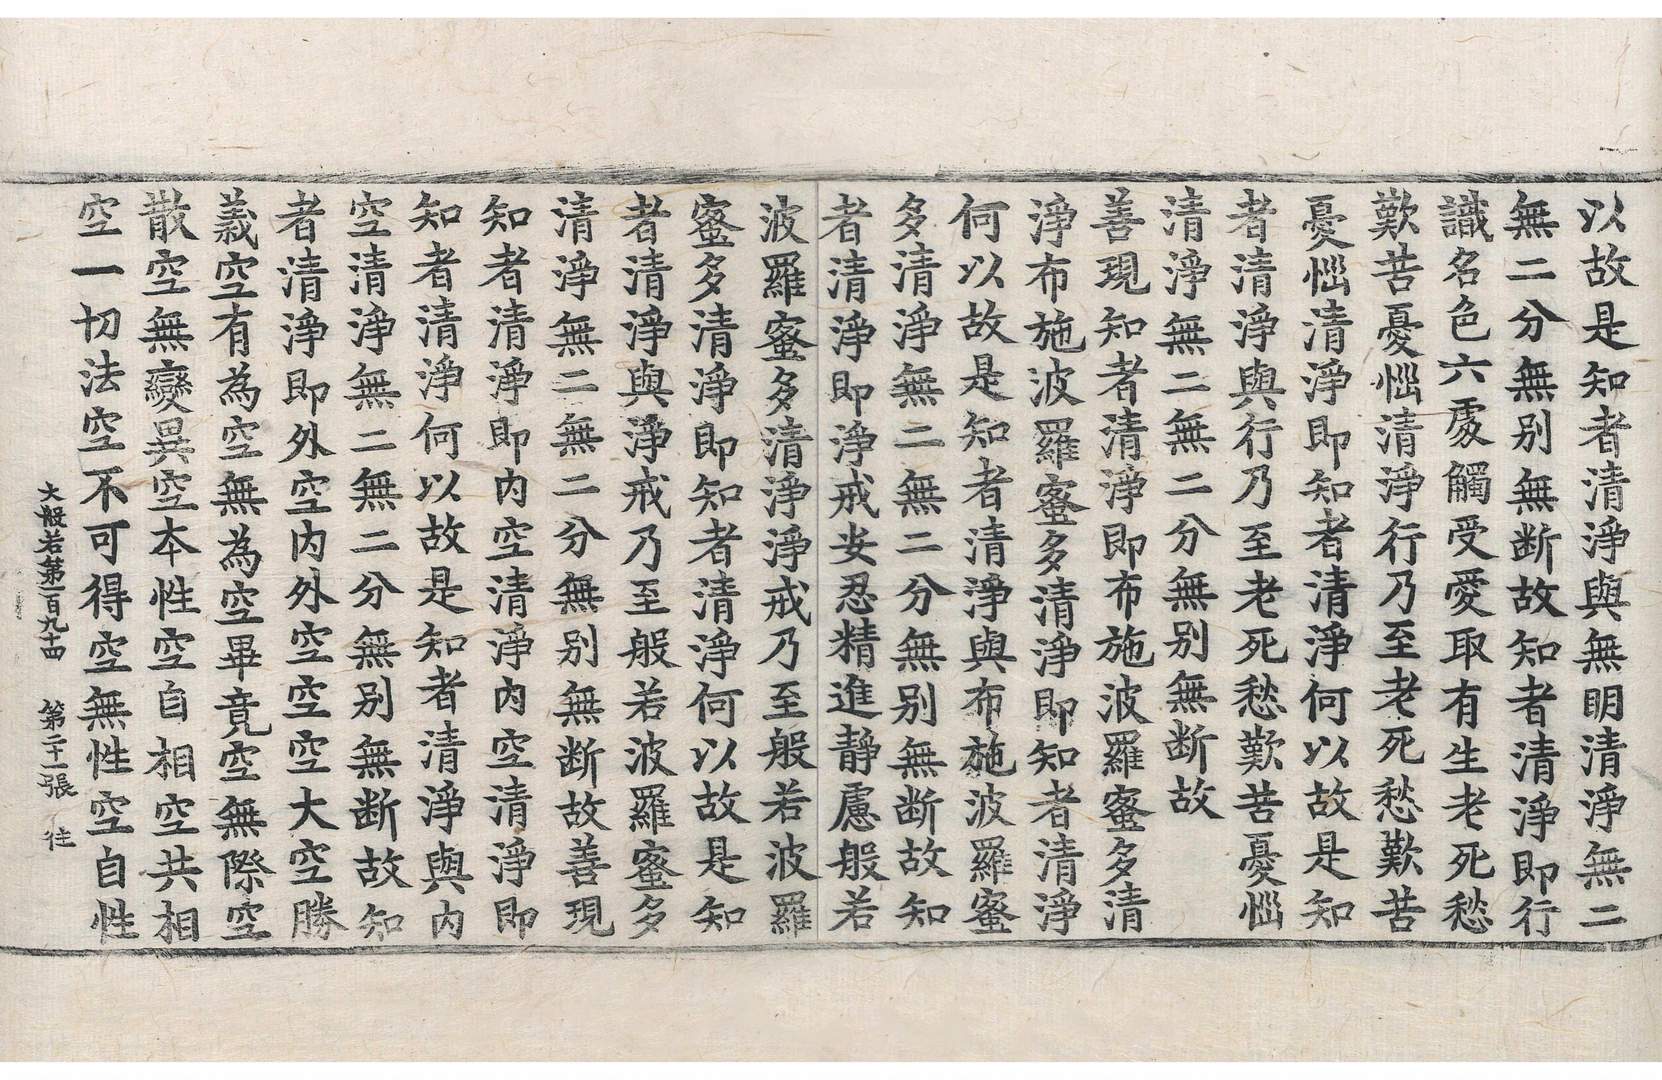 以故是知者清淨與無明清淨無二
無二分無别無断故知者清淨即行
識名色六處觸受愛取有生老死愁
歎苦憂惱清淨行乃至老死愁歎苦
憂惱清淨即知者清淨何以故是知
者清淨與行乃至老死愁歎苦憂惱
清淨無二無二分無别無断故
善現知者清淨即布施波羅蜜多清
淨布施波羅蜜多清淨即知者清淨
何以故是知者清淨與布施波羅蜜
多清淨無二無二分無别無断故知
者清淨即淨戒安忍精進静慮般若
波羅蜜多清淨淨戒乃至般若波羅
蜜多清淨即知者清淨何以故是知
者清淨與淨戒乃至般若波羅蜜多
清淨無二無二分無别無断故善現
知者清淨即内空清淨内空清淨即
知者清淨何以故是知者清淨與内
空清淨無二無二分無别無断故知
者清淨即外空内外空空空大空勝
義空有為空無為空畢竟空無際空
散空無變異空本性空自相空共相
空一切法空不可得空無性空自性
大般若第一百九十四　第二十一張　往